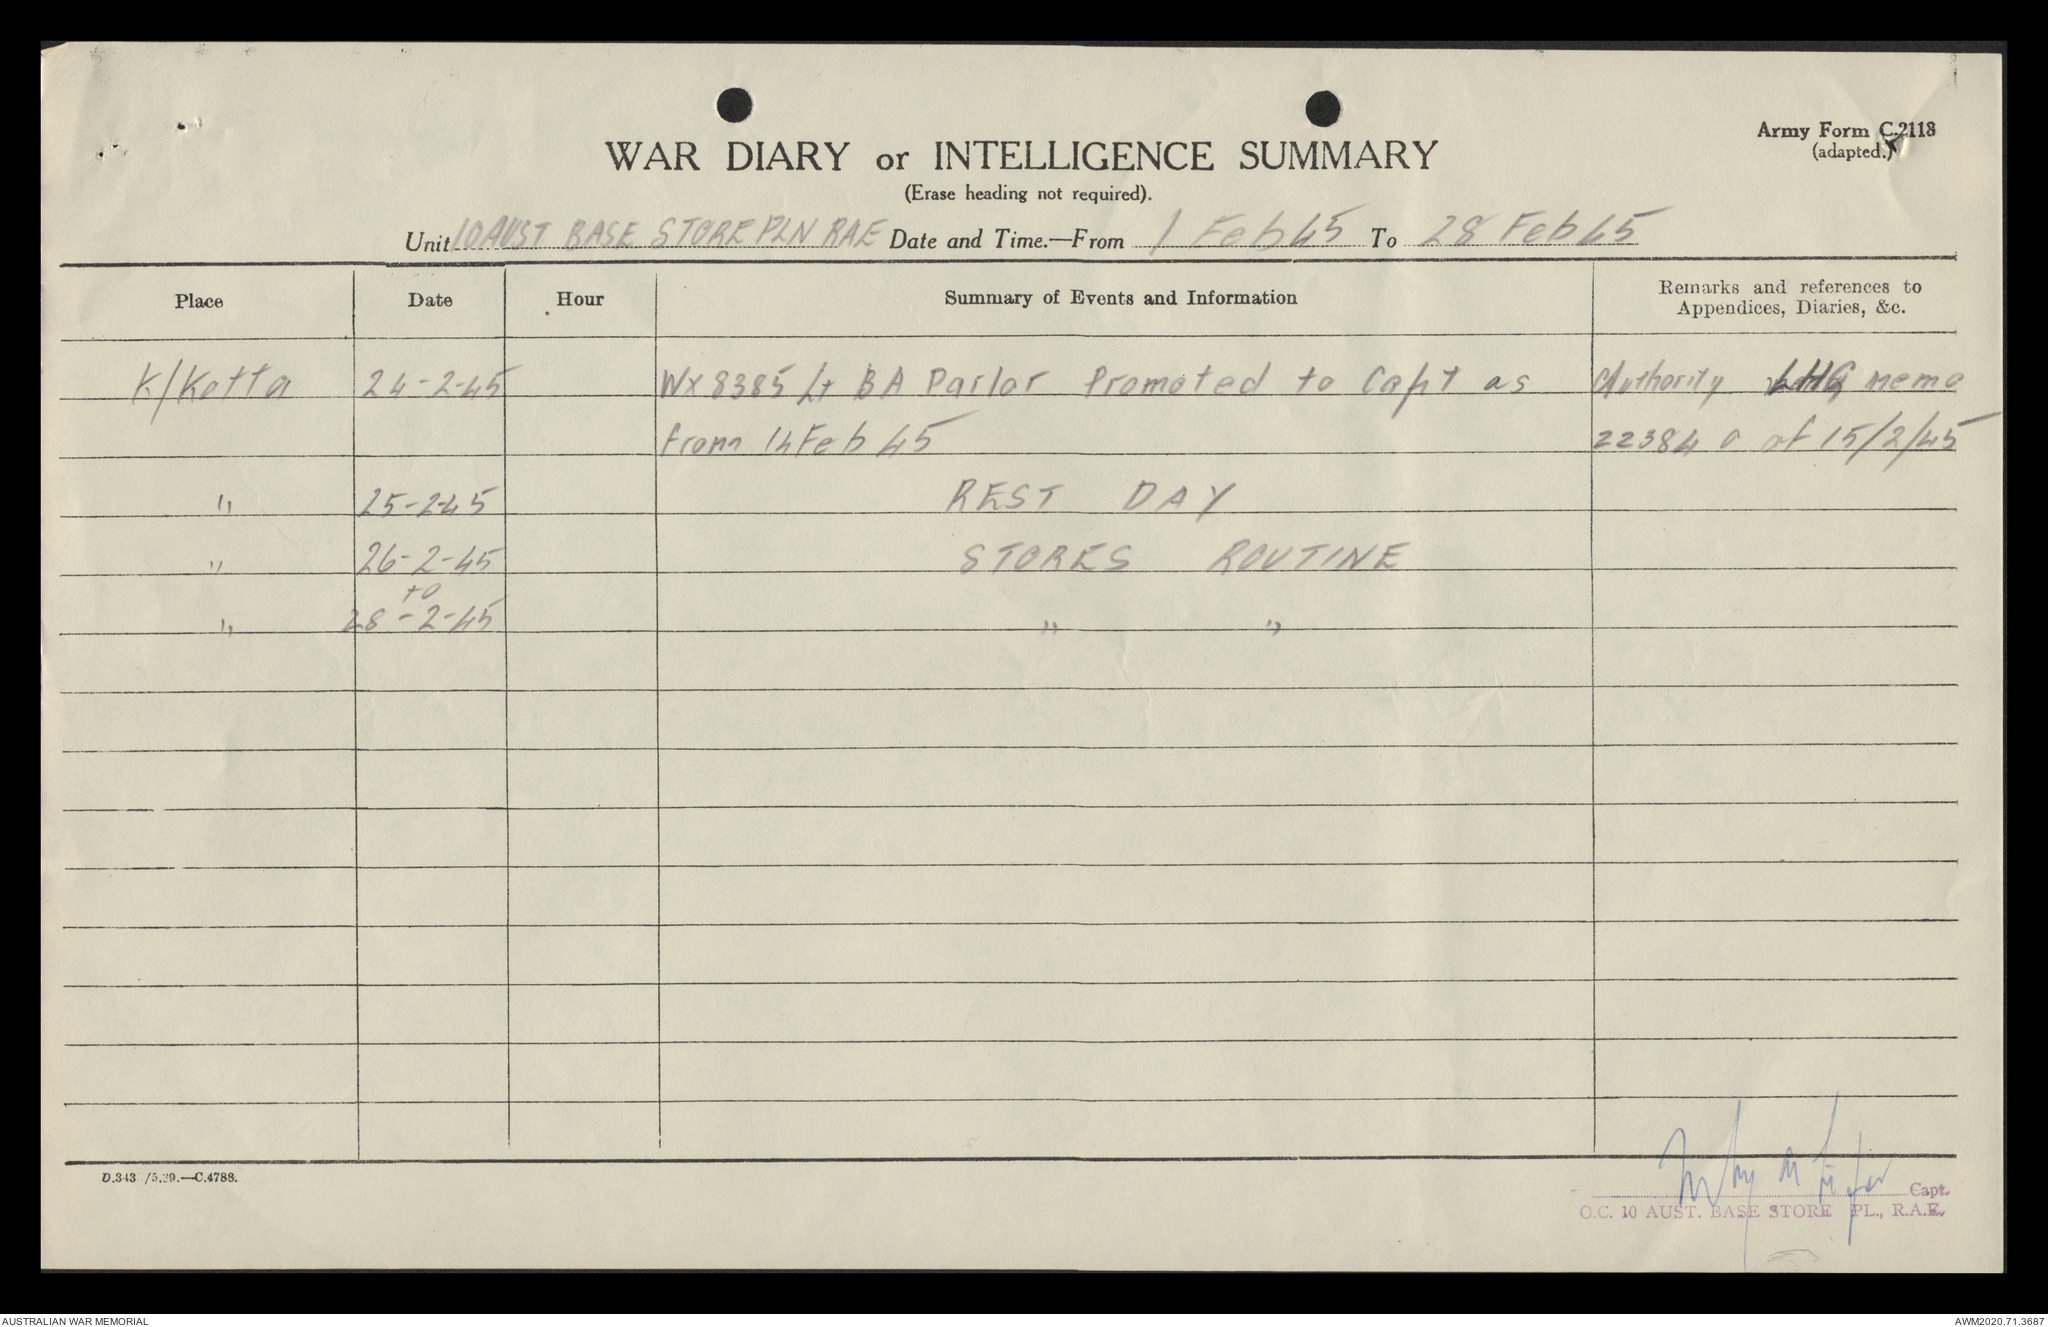 Army Form C.2118
(adapted.)
WAR DIARY or INTELLIGENCE SUMMARY
(Erase heading not required).
Unit 10 AUST BASE STORE PLN RAE Date and Time.—From 1 Feb 45 To 28 Feb 45
Place Date Hour Summary of Events and Information Remarks and references to
Appendices, Diaries, &c.
K/Katta 24-2-45 WX8385 Lt BA Parlor Promoted to Capt as Authority LHQ memo
from 14 Feb 45 22384 of 15/2/45
" 25-2-45 REST DAY
" 26-2-45 STORES ROUTINE
to
" 28-2-45 " "
D.343 /5.39.—C.4788.
Capt.
O.C. 10 AUST. BASE STORE PL., R.A.E.
AUSTRALIAN WAR MEMORIAL AWM2020.71.3687